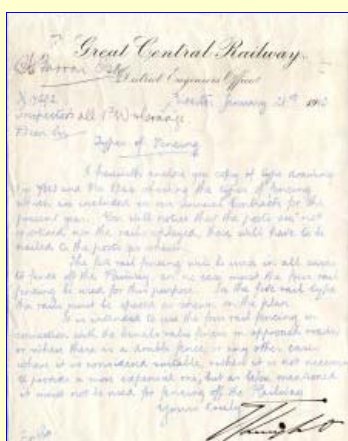 Great Central Railway.
District Engineer's Office
January 21st 19
Inspectors all
Dear Sir
Types of Fencing
I herewith enclose you copy of type drawing
showing the types of fencing
which are included in our Contracts for the
present year. You will notice that the posts are not
nor the rails splayed, these will have to be
nailed to the posts as shewn.
The five rail fencing must be used in all cases
to fence off the Railway, on no case must the four rail
fencing be used for this purpose. In the five rail type
the rails must be spaced as shewn on the plan.
It is intended to use the four rail fencing in
connection with the on approach roads
or where there is a double fence, or any other case
where it is considered suitable, where it is not necessary
to provide a more expensive one, but as before mentioned
it must not be used for fencing off the Railway.
Yours truly